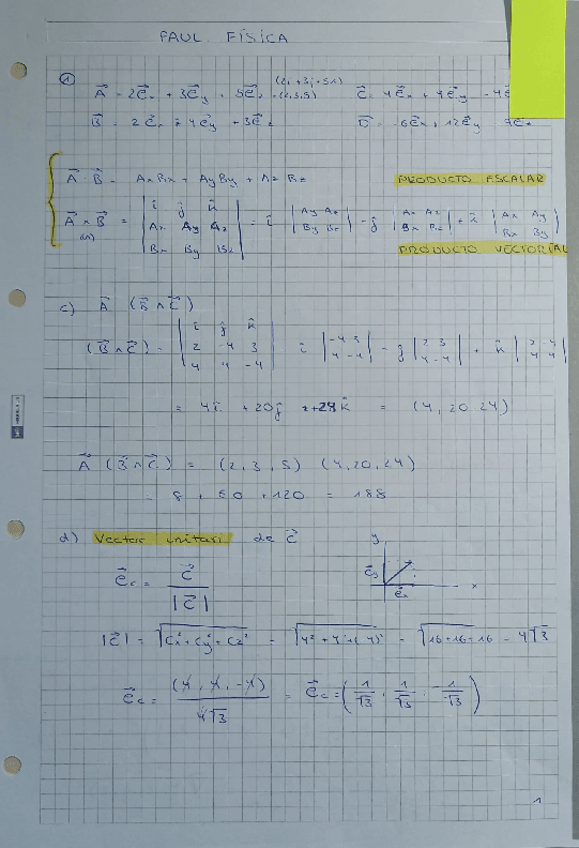 PAUL FÍSICA
(2i +3j+5k)
① A⃗ = 2e⃗x + 3e⃗y + 5e⃗z = (2,3,5) C⃗ = 4e⃗x + 4e⃗y - 4e⃗
B⃗ = 2e⃗x - 4e⃗y + 3e⃗z D⃗ = -6e⃗x + 12e⃗y 7e⃗z
A⃗ · B⃗ = AxBx + AyBy + Az Bz PRODUCTO ESCALAR
A⃗ x B⃗ = | i j k | = i | Ay Az | - j | Ax Az | + k | Ax Ay |
(∧) | Ax Ay Az | | By Bz | | Bx Bz | | Bx By |
| Bx By Bz | PRODUCTO VECTORIAL
c) A⃗ (B⃗ ∧ C⃗)
(B⃗ ∧ C⃗) = | i j k | i | -4 3 | - j | 2 3 | + k | 2 -4 |
| 2 -4 3 | | 4 -4 | | 4 -4 | | 4 4 |
| 4 4 -4 |
= 4i + 20j + 24k = (4, 20, 24)
A⃗ (B⃗ ∧ C⃗) = (2, 3, 5) (4, 20, 24)
8 + 60 + 120 = 188
d) Vector unitari de C⃗
y
e⃗c = C⃗ / |C⃗|
x
|C⃗| = √(Cx² + Cy² + Cz²) = √(4² + 4² + (-4)²) = √(16+16+16) = 4√3
e⃗c = (4, 4, -4) / 4√3 = e⃗c = (1/√3, 1/√3, -1/√3)
1